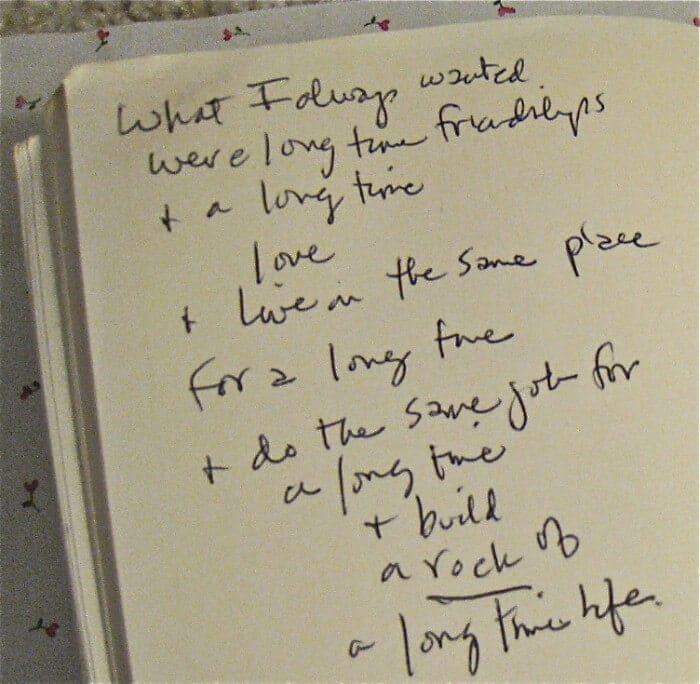 What I always wanted
were long time friendships
+ a long time
love
+ live in the same place
for a long time
+ do the same job for
a long time
+ build
a rock of
a long time life.